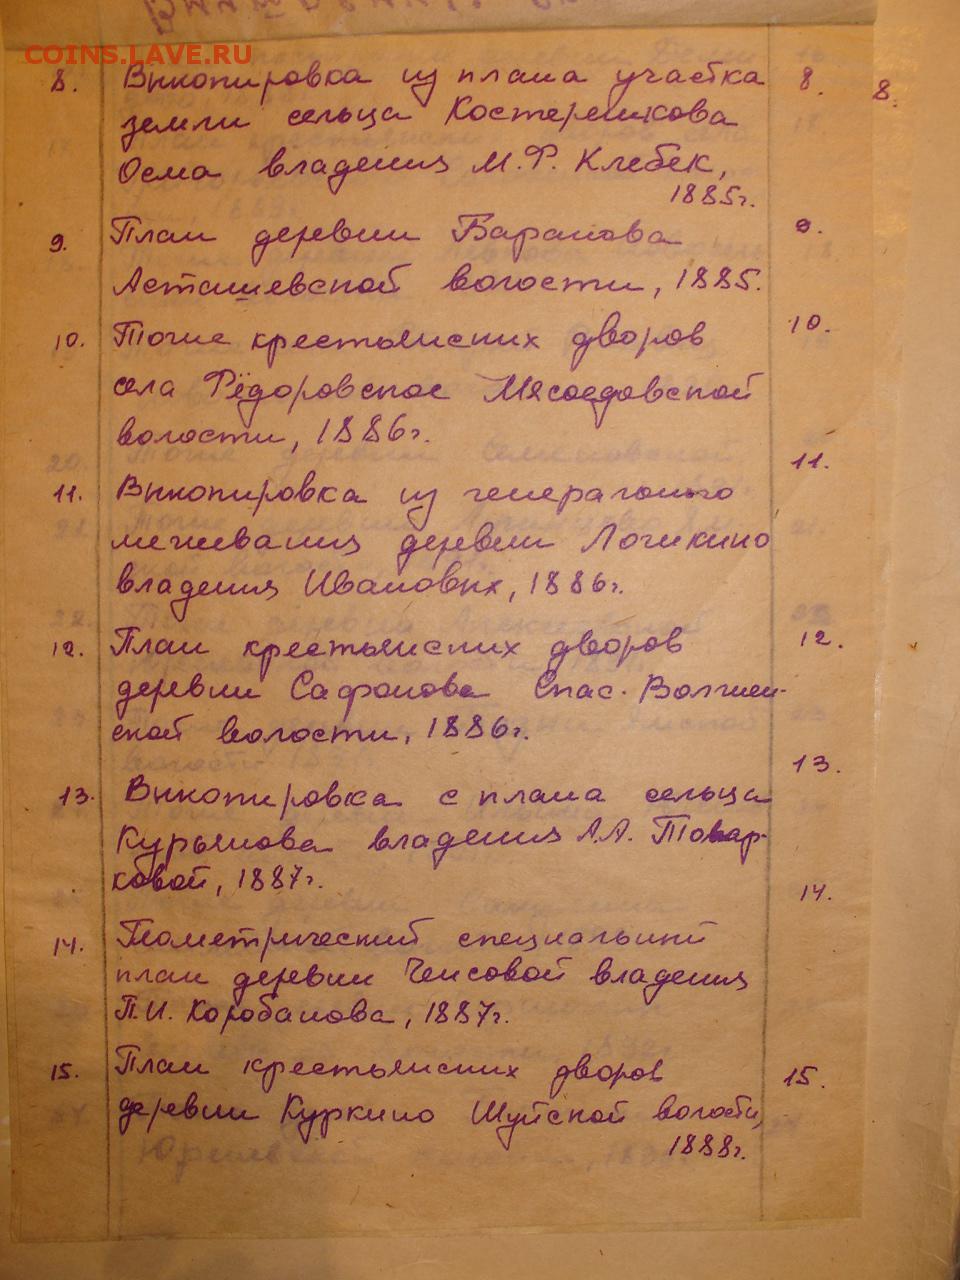 COINS.LAVE.RU
8. Выкопировка из плана участка 8. 8.
земли сельца Костерешкова
Осма владения М.Ф. Клебек,
1885г.
9. План деревни Баранова 9.
Асташевской волости, 1885.
10. Тоже крестьянских дворов 10.
села Фёдоровское Мясоедовской
волости, 1886г.
11. Выкопировка из генерального 11.
межевания деревни Логикино
владения Ивановых, 1886г.
12. План крестьянских дворов 12.
деревни Сафонова Спас-Волжен-
ской волости, 1886г.
13. Выкопировка с плана сельца 13.
Курьянова владения А.А. Товар-
ковой, 1887г.
14. Геометрический специальный 14.
план деревни Ченсовой владения
П.И. Коробанова, 1887г.
15. План крестьянских дворов 15.
деревни Куркино Шуйской волости,
1888г.